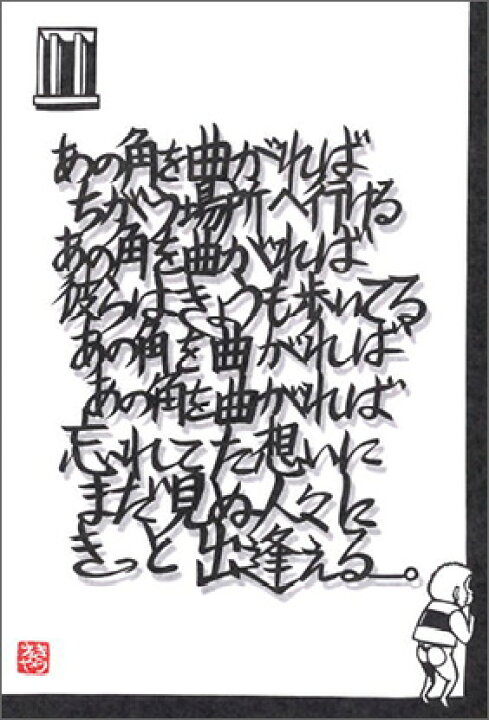 あの角を曲がれば
ちがう場所へ行ける
あの角を曲がれば
彼らはきょうも歩いてる
あの角を曲がれば
あの角を曲がれば
忘れてた想いに
まだ見ぬ人々に
きっと出逢える―。